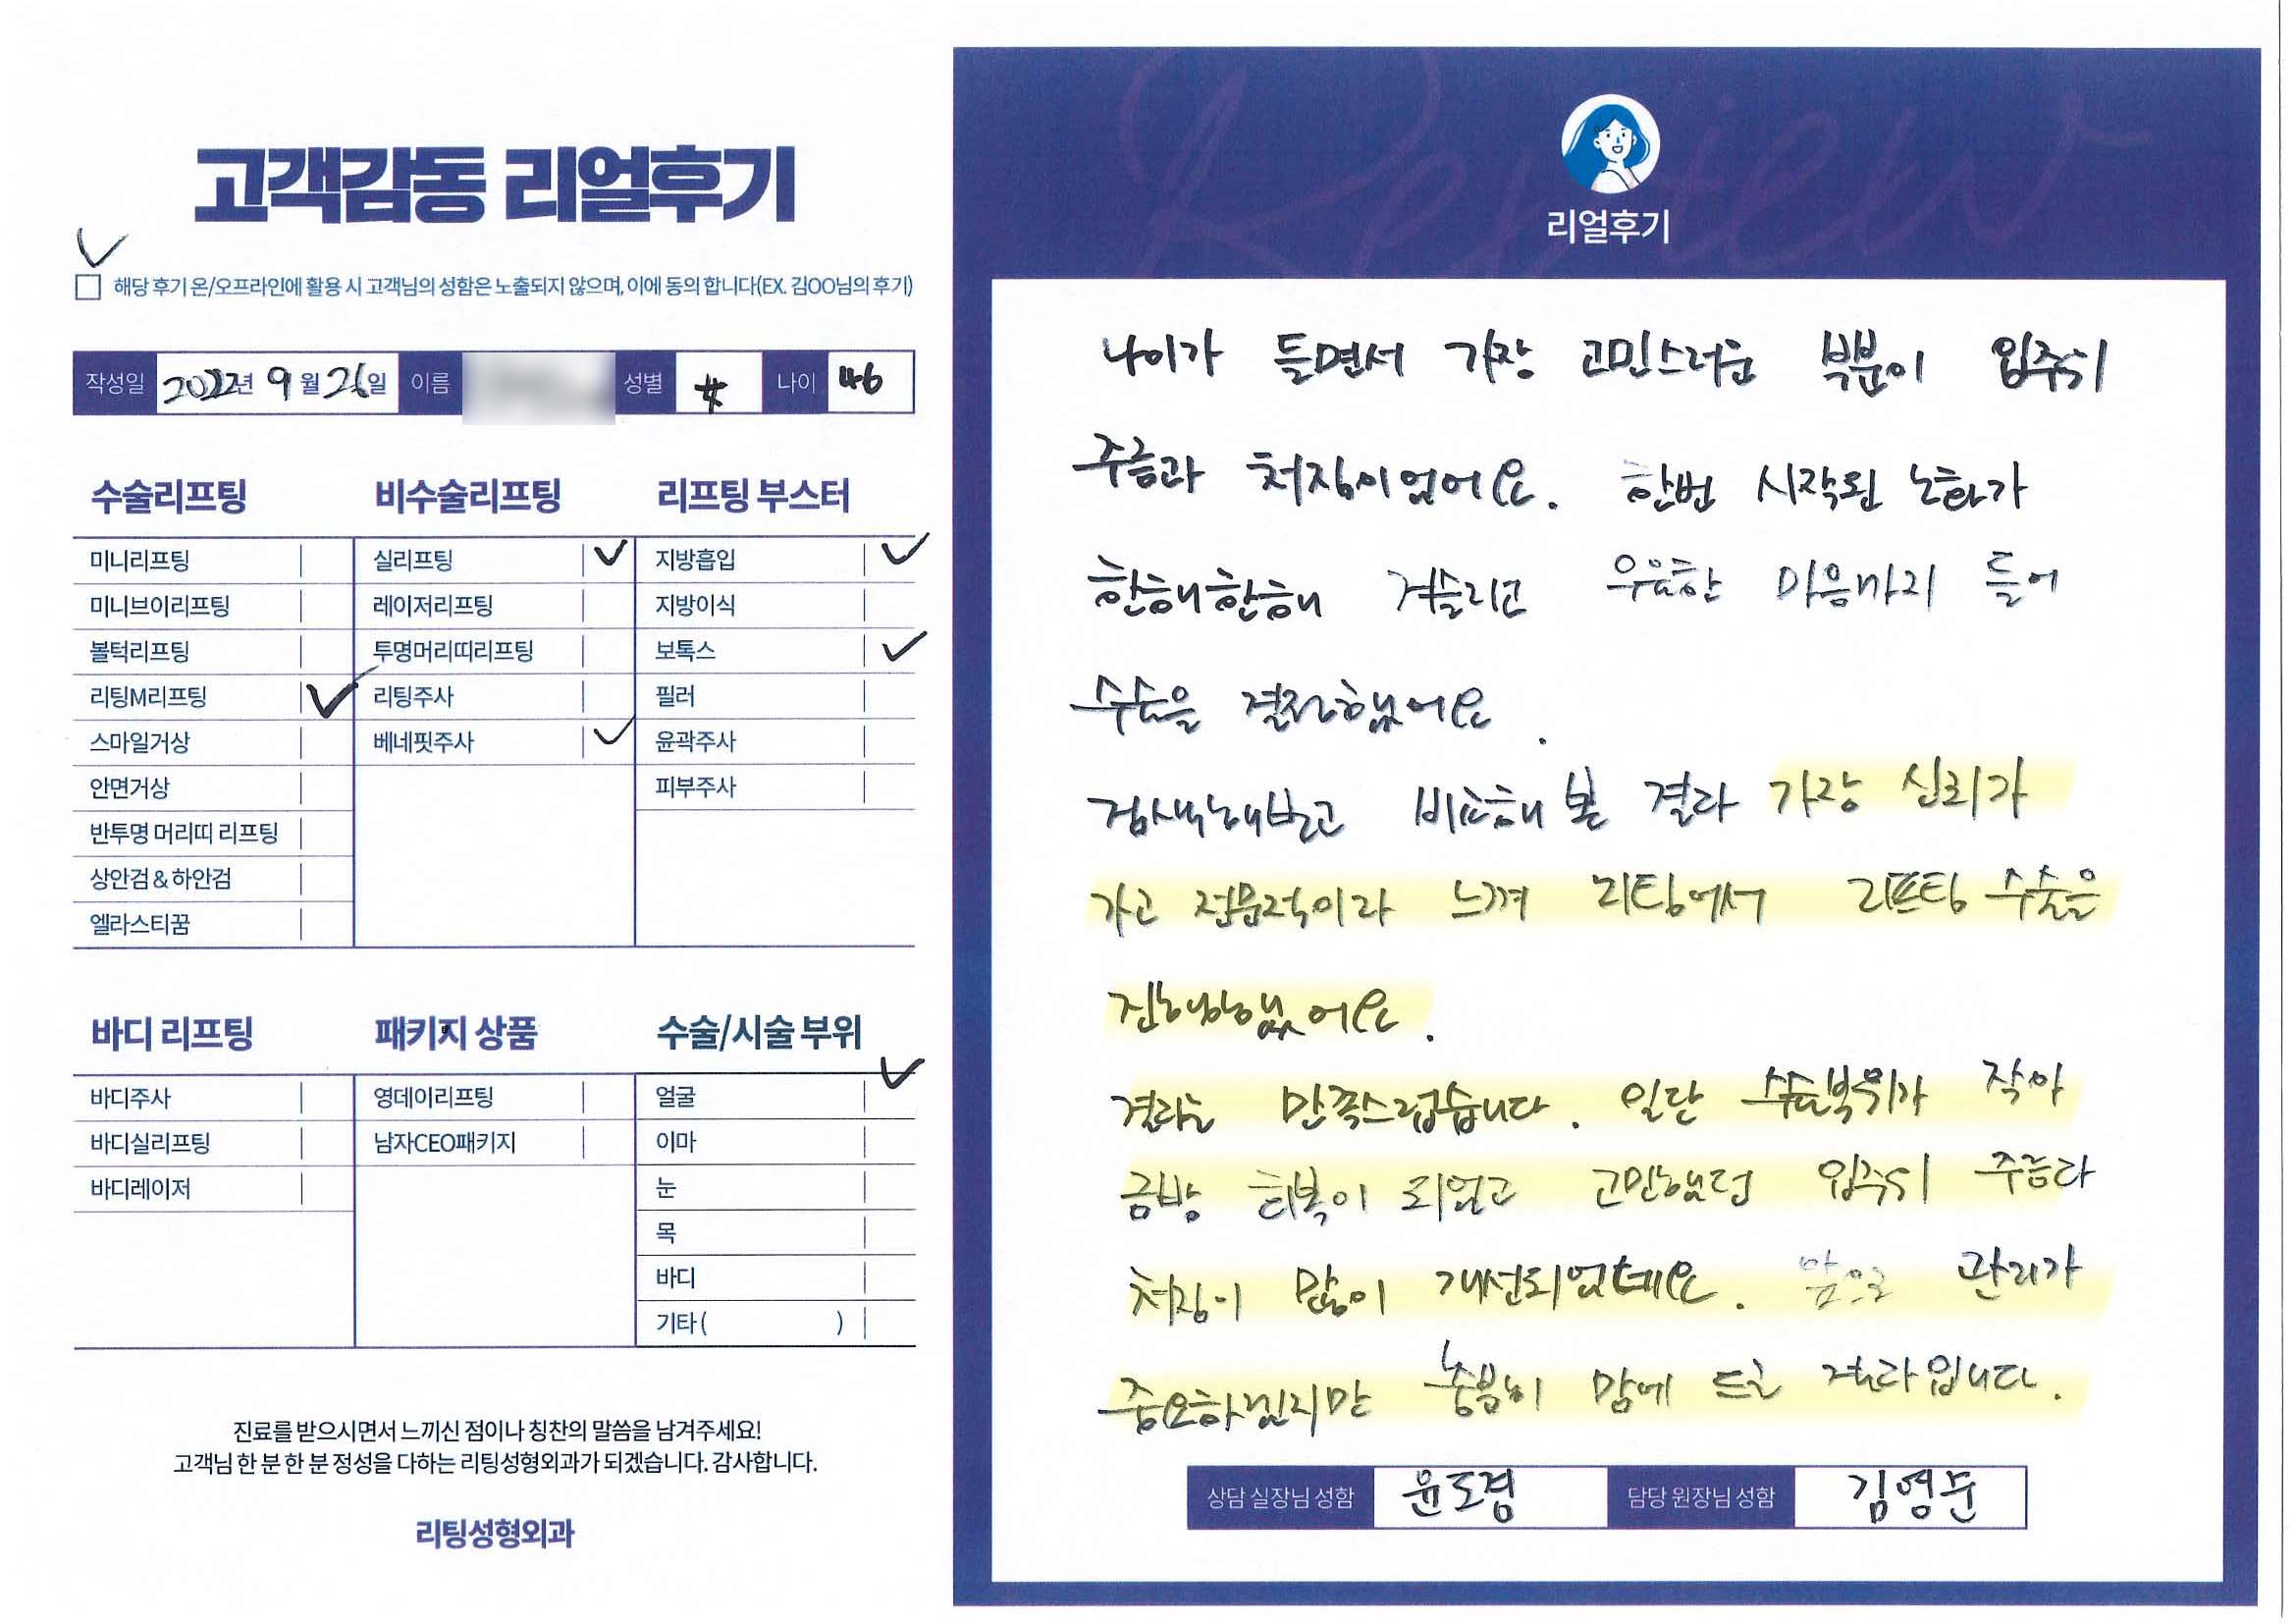 고객감동 리얼후기
해당 후기 온/오프라인에 활용 시 고객님의 성함은 노출되지 않으며, 이에 동의 합니다(EX. 김OO님의 후기)
작성일 2022년 9월 26일 이름 성별 女 나이 46
수술리프팅 비수술리프팅 리프팅 부스터
미니리프팅 실리프팅 지방흡입
미니브이리프팅 레이저리프팅 지방이식
볼턱리프팅 투명머리띠리프팅 보톡스
리팅M리프팅 리팅주사 필러
스마일거상 베네핏주사 윤곽주사
안면거상 피부주사
반투명 머리띠 리프팅
상안검 & 하안검
엘라스티꿈
바디 리프팅 패키지 상품 수술/시술 부위
바디주사 영데이리프팅 얼굴
바디실리프팅 남자CEO패키지 이마
바디레이저 눈
목
바디
기타 ( )
진료를 받으시면서 느끼신 점이나 칭찬의 말씀을 남겨주세요!
고객님 한 분 한 분 정성을 다하는 리팅성형외과가 되겠습니다. 감사합니다.
리팅성형외과
Review
리얼후기
나이가 들면서 가장 고민스러운 부분이 입주위
주름과 처짐이었어요. 한번 시작된 노화가
한해한해 거슬리고 우울한 마음까지 들어
수술을 결정했어요.
검색해보고 비교해 본 결과 가장 신뢰가
가고 전문적이라 느껴 리팅에서 리프팅 수술을
진행했어요.
결과는 만족스럽습니다. 일단 수술부위가 작아
금방 회복이 되었고 고민했던 입주위 주름과
처짐이 많이 개선되었네요. 앞으로 관리가
중요하겠지만 충분히 맘에 드는 결과입니다.
상담 실장님 성함 윤도경 담당 원장님 성함 김영준